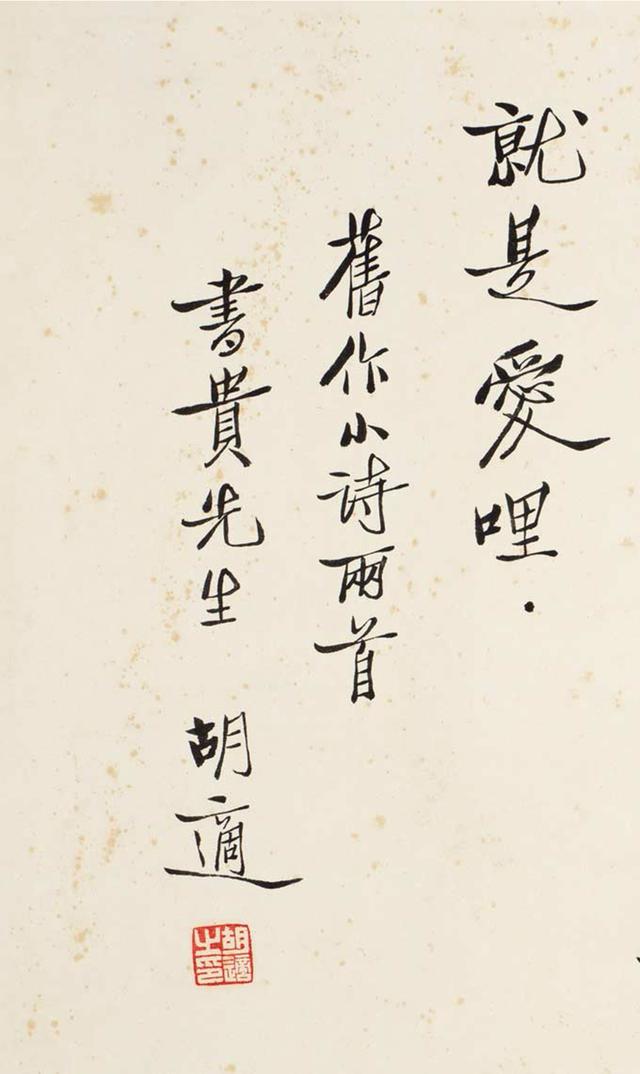 就是愛哩．
舊作小詩兩首
書貴先生 胡適
胡適之印